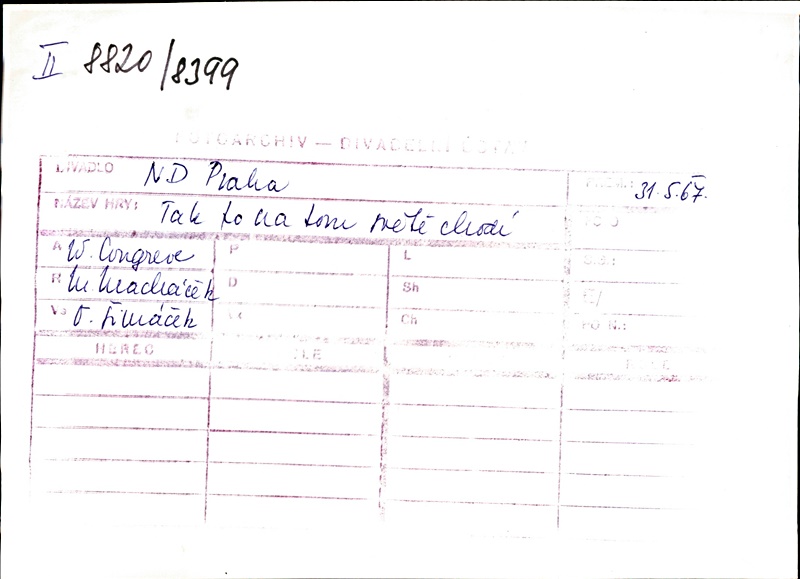 II 8820/8399
FOTOARCHIV — DIVADELNÍ ÚSTAV
DIVADLO ND Praha
PREM.: 31.5.67.
NÁZEV HRY: Tak to na tom světě chodí
A W. Congreve P L
R M. Macháček D Sh
Vs O. Šimáček Ch
HEREC